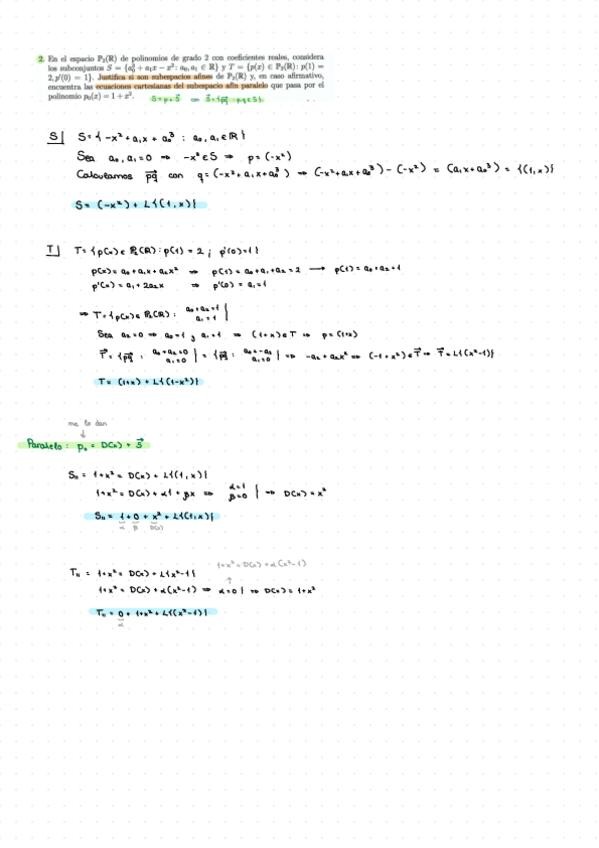 2. En el espacio P₂(ℝ) de polinomios de grado 2 con coeficientes reales, considera
los subconjuntos S = {a₀³ + a₁x − x² : a₀, a₁ ∈ ℝ} y T = {p(x) ∈ P₂(ℝ): p(1) =
2, p'(0) = 1}. Justifica si son subespacios afines de P₂(ℝ) y, en caso afirmativo,
encuentra las ecuaciones cartesianas del subespacio afín paralelo que pasa por el
polinomio p₀(x) = 1 + x².
S = p + S⃗ S⃗ = {p⃗q : p,q ∈ S}
S| S = { -x² + a₁x + a₀³ : a₀, a₁ ∈ ℝ }
Sea a₀, a₁ = 0 ⇒ -x² ∈ S ⇒ p = (-x²)
Calculamos p⃗q con q = (-x² + a₁x + a₀³) ⇒ (-x² + a₁x + a₀³) - (-x²) = (a₁x + a₀³) = {(1, x)}
S = (-x²) + L{(1, x)}
T| T = {p(x) ∈ P₂(ℝ) : p(1) = 2 ; p'(0) = 1}
p(x) = a₀ + a₁x + a₂x² ⇒ p(1) = a₀ + a₁ + a₂ = 2 → p(1) = a₀ + a₂ = 1
p'(x) = a₁ + 2a₂x ⇒ p'(0) = a₁ = 1
⇒ T = {p(x) ∈ P₂(ℝ) : a₀ + a₂ = 1
a₁ = 1 }
Sea a₂ = 0 ⇒ a₀ = 1 y a₁ = 1 ⇒ (1+x) ∈ T ⇒ p = (1+x)
T⃗ = {p⃗q : a₀ + a₂ = 0
a₁ = 0 } = {p⃗q : a₀ = -a₂
a₁ = 0 } ⇒ -a₂ + a₂x² ⇒ (-1 + x²) ∈ T⃗ ⇒ T⃗ = L{(x²-1)}
T = (1+x) + L{(1-x²)}
me lo dan
↓
Paralelo : p₀ = D(x) + S⃗
S₁₁ = 1+x² = D(x) + L{(1, x)}
1+x² = D(x) + α1 + βx ⇒ α = 1
β = 0 | ⇒ D(x) = x²
S₁₁ = 1 + 0 + x² + L{(1, x)}
α β D(x)
1+x² = D(x) + α(x²-1)
T₁₁ = 1+x² = D(x) + L{x²-1}
↑
1+x² = D(x) + α(x²-1) ⇒ α = 0 | ⇒ D(x) = 1+x²
T₁₁ = 0 + 1+x² + L{(x²-1)}
α